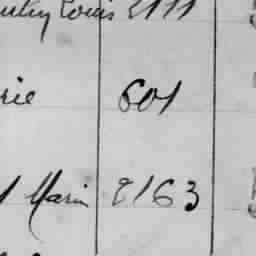 Louis 2111
rie 601
Marin 2163